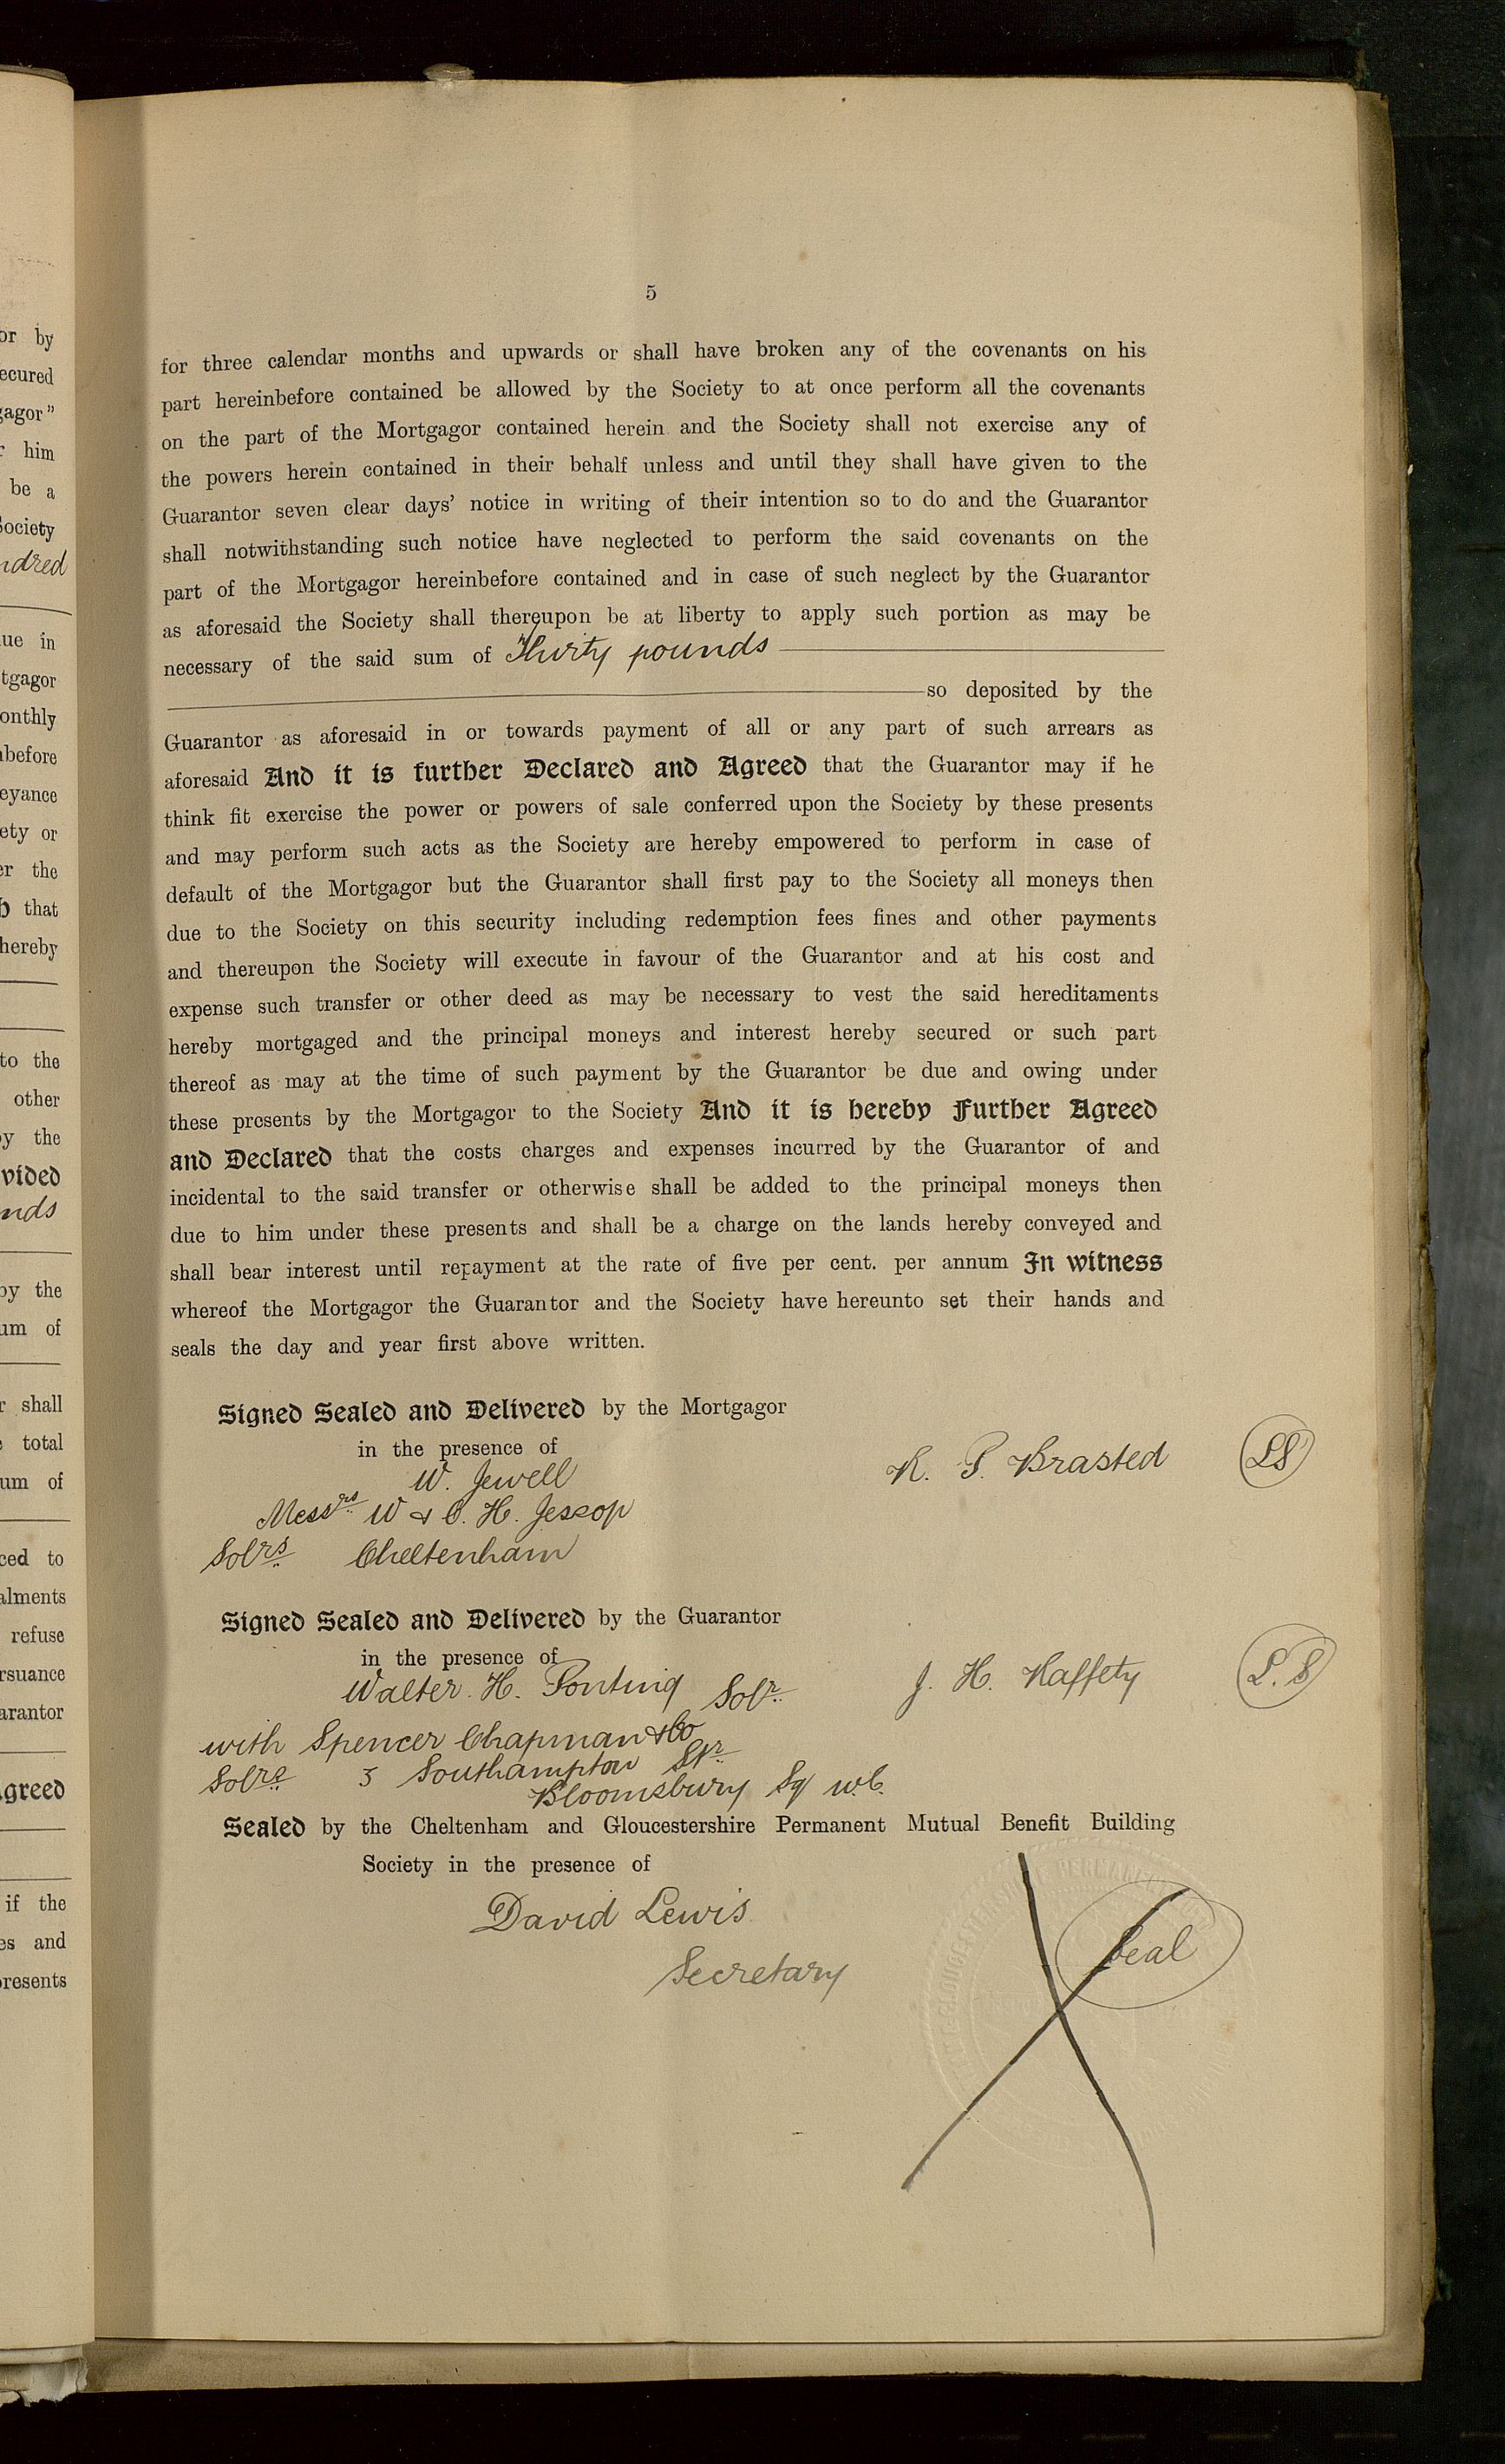 5
for three calendar months and upwards or shall have broken any of the covenants on his
part hereinbefore contained be allowed by the Society to at once perform all the covenants
on the part of the Mortgagor contained herein and the Society shall not exercise any of
the powers herein contained in their behalf unless and until they shall have given to the
Guarantor seven clear days' notice in writing of their intention so to do and the Guarantor
shall notwithstanding such notice have neglected to perform the said covenants on the
part of the Mortgagor hereinbefore contained and in case of such neglect by the Guarantor
as aforesaid the Society shall thereupon be at liberty to apply such portion as may be
necessary of the said sum of Thirty pounds
so deposited by the
Guarantor as aforesaid in or towards payment of all or any part of such arrears as
aforesaid And it is further Declared and Agreed that the Guarantor may if he
think fit exercise the power or powers of sale conferred upon the Society by these presents
and may perform such acts as the Society are hereby empowered to perform in case of
default of the Mortgagor but the Guarantor shall first pay to the Society all moneys then
due to the Society on this security including redemption fees fines and other payments
and thereupon the Society will execute in favour of the Guarantor and at his cost and
expense such transfer or other deed as may be necessary to vest the said hereditaments
hereby mortgaged and the principal moneys and interest hereby secured or such part
thereof as may at the time of such payment by the Guarantor be due and owing under
these presents by the Mortgagor to the Society And it is hereby Further Agreed
and Declared that the costs charges and expenses incurred by the Guarantor of and
incidental to the said transfer or otherwise shall be added to the principal moneys then
due to him under these presents and shall be a charge on the lands hereby conveyed and
shall bear interest until repayment at the rate of five per cent. per annum In witness
whereof the Mortgagor the Guarantor and the Society have hereunto set their hands and
seals the day and year first above written.
Signed Sealed and Delivered by the Mortgagor
in the presence of
W. Jewell
K. P. Brasted LS
Messrs W & C. H. Jessop
Solrs Cheltenham
Signed Sealed and Delivered by the Guarantor
in the presence of
Walter. H. Ponting Solr.
J. H. Haffety L. S
with Spencer Chapman & Co
Solrs 3 Southampton Str
Bloomsbury Sq W.C.
Sealed by the Cheltenham and Gloucestershire Permanent Mutual Benefit Building
Society in the presence of
David Lewis
Seal
Secretary